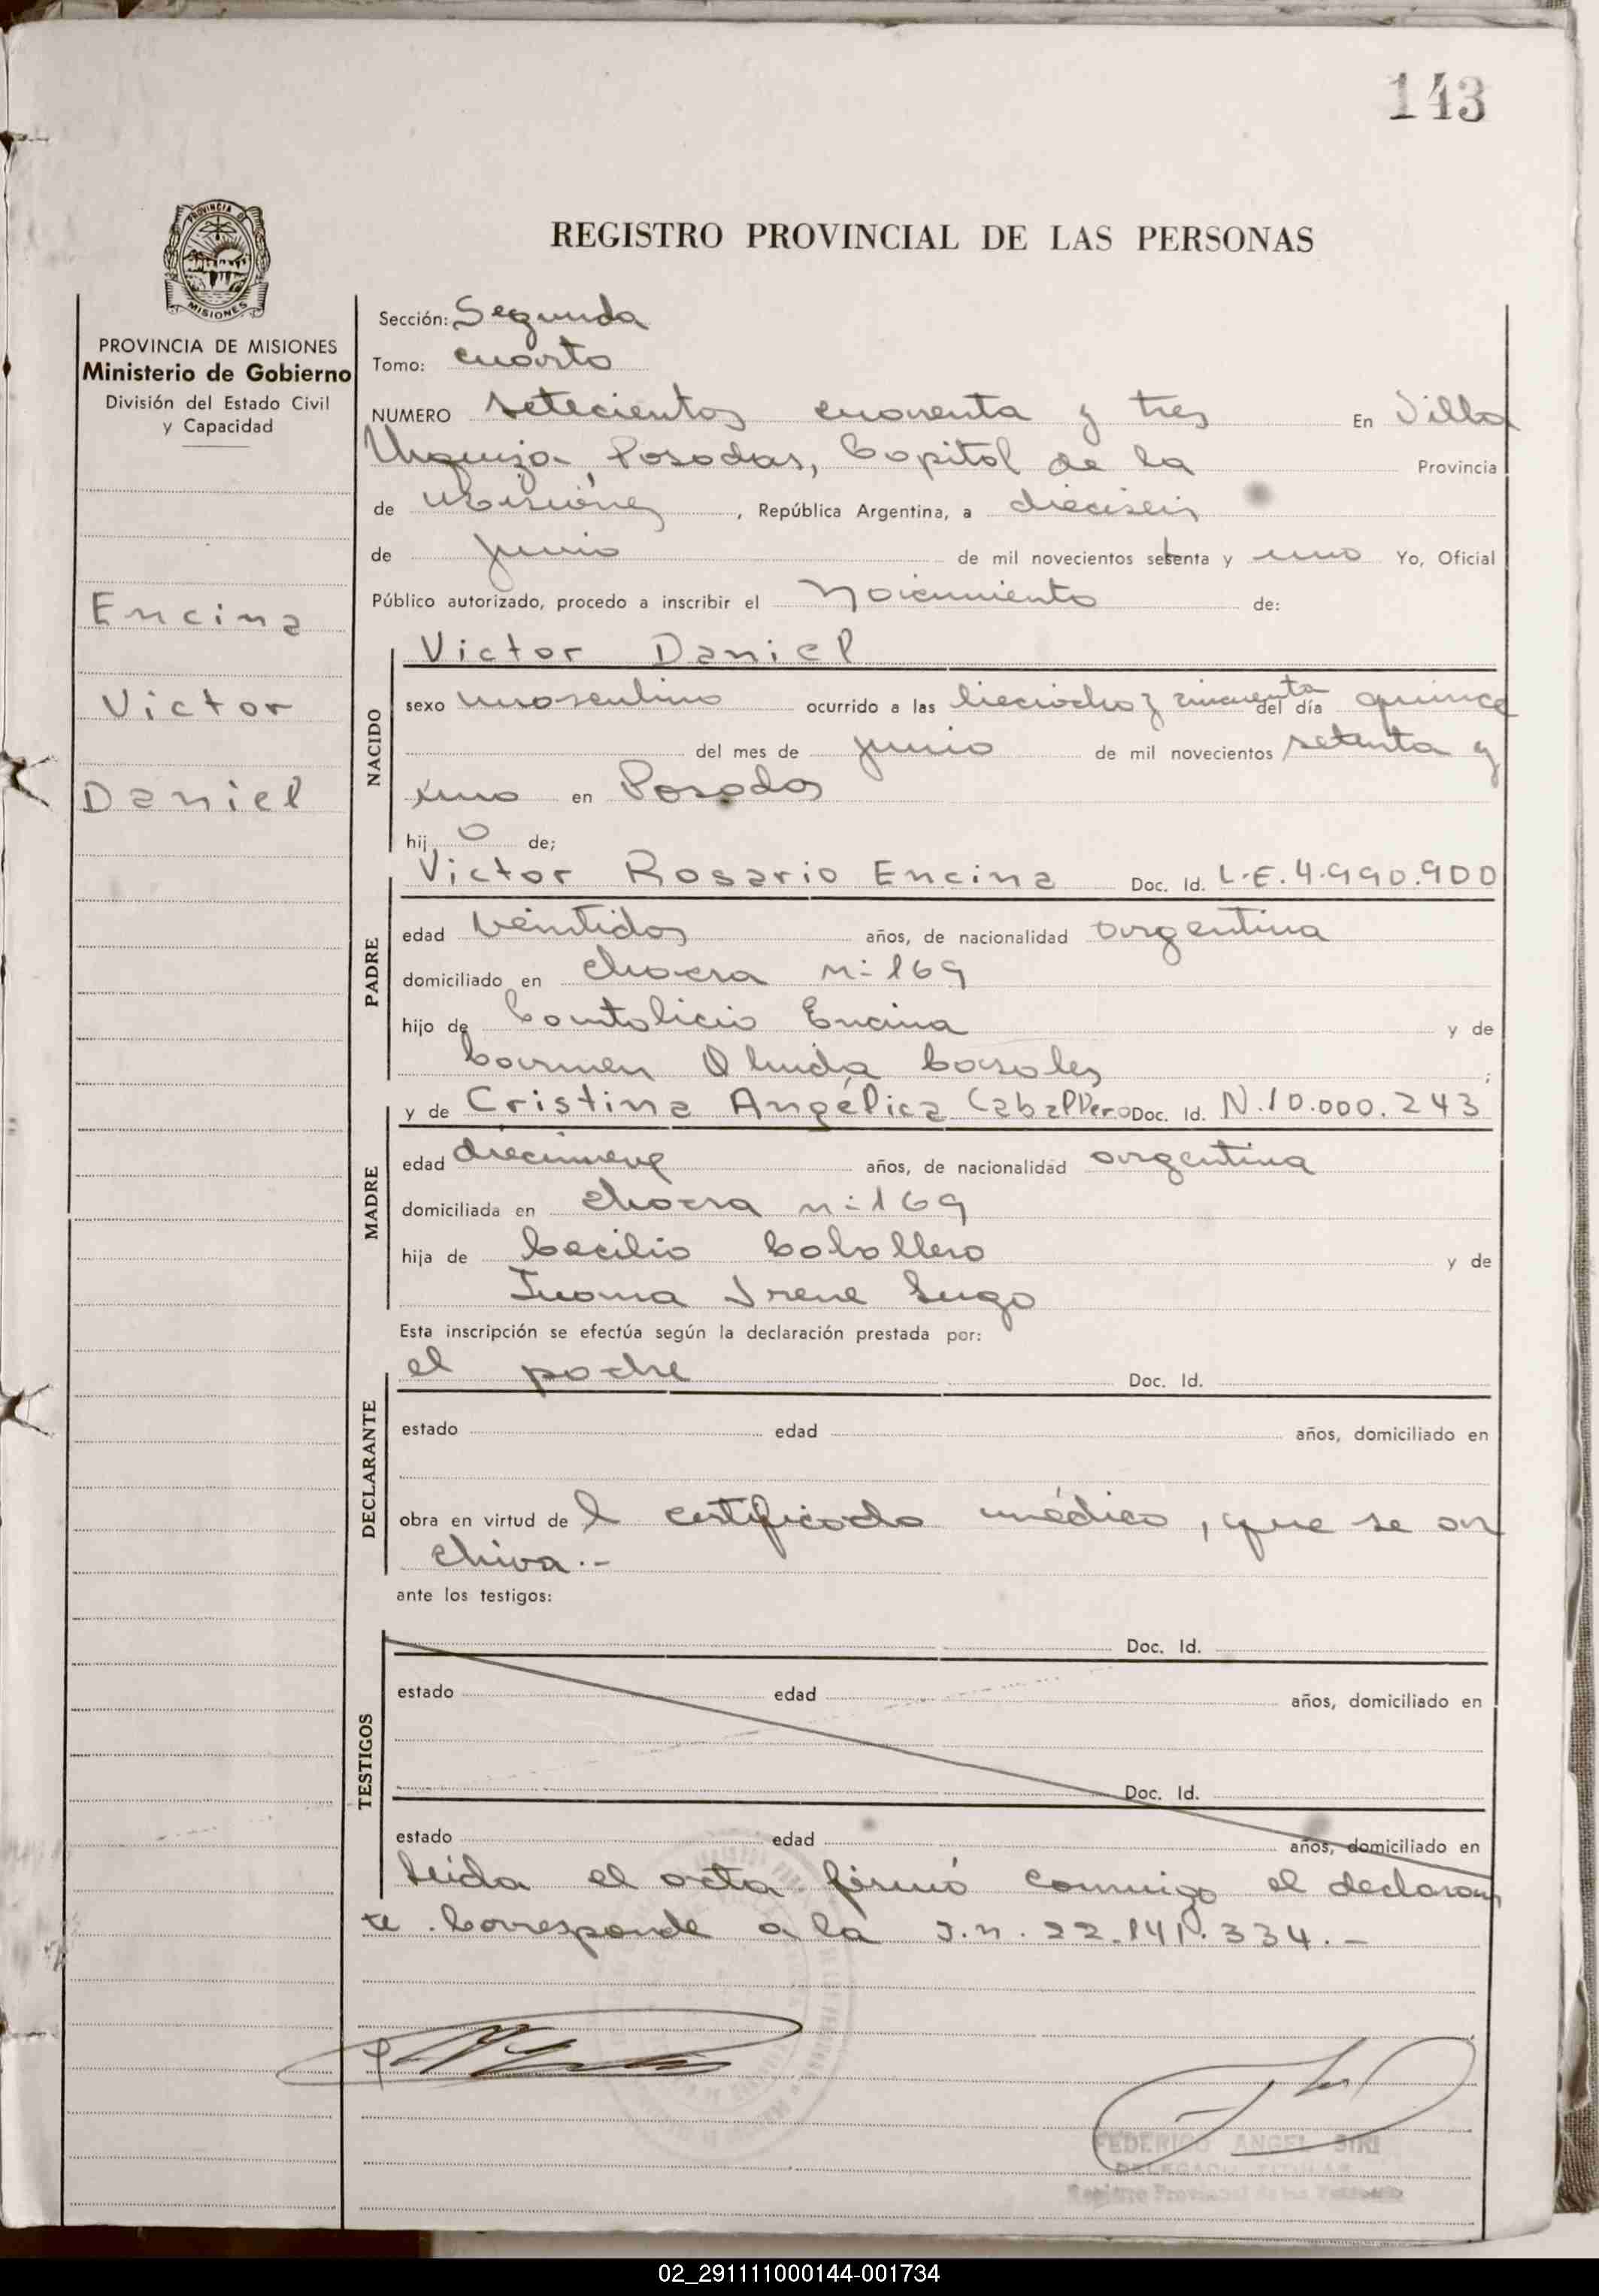 143
REGISTRO PROVINCIAL DE LAS PERSONAS
PROVINCIA DE MISIONES
Ministerio de Gobierno
División del Estado Civil
y Capacidad
Encina
Victor
Daniel
Sección: Segunda
Tomo: cuarto
NUMERO setecientos cuarenta y tres En Villa
Urquiza, Posadas, Capital de la Provincia
de Misiones, República Argentina, a dieciseis
de junio de mil novecientos setenta y uno Yo, Oficial
Público autorizado, procedo a inscribir el Nacimiento de:
NACIDO
Victor Daniel
sexo masculino ocurrido a las dieciocho y cincuenta del día quince
del mes de junio de mil novecientos setenta y
uno en Posadas
hijo de;
PADRE
Victor Rosario Encina Doc. Id. L.E. 4.990.900
edad veintidos años, de nacionalidad argentina
domiciliado en chacra n:169
hijo de Encina y de
Carmen Casales;
MADRE
y de Cristina Angélica Caballero Doc. Id. N.10.000.243
edad diecinueve años, de nacionalidad argentina
domiciliada en chacra n:169
hija de Cecilio Caballero y de
Juana Irene Lugo
Esta inscripción se efectúa según la declaración prestada por:
DECLARANTE
el padre Doc. Id.
estado edad años, domiciliado en
obra en virtud del certificado médico, que se ar
chiva.-
ante los testigos:
TESTIGOS
Doc. Id.
estado edad años, domiciliado en
Doc. Id.
estado edad años, domiciliado en
Leida el acta firmó conmigo el declaran
te. Corresponde a la I.n. 22.141.334.-
FEDERICO ANGEL SIRI
DELEGADO TITULAR
Registro Provincial de las Personas
02_291111000144-001734